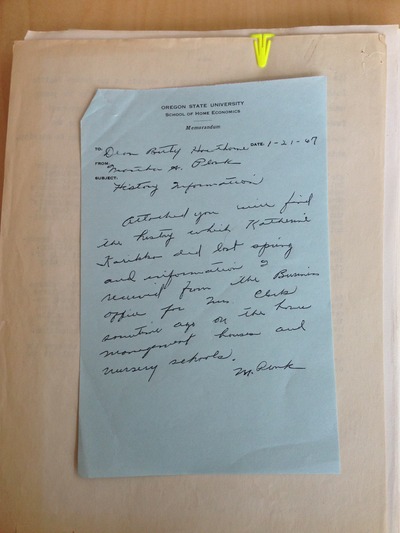 OREGON STATE UNIVERSITY
SCHOOL OF HOME ECONOMICS
Memorandum
TO: Dean Betty Hawthorne DATE: 1-21-67
FROM: Martha A. Plonk
SUBJECT:
History Information
Attached you will find
the history which Katherine
did last spring
and information I
received from the Business
office for Mrs. Clark
sometime ago on the home
management houses and
nursery schools.
M. Plonk